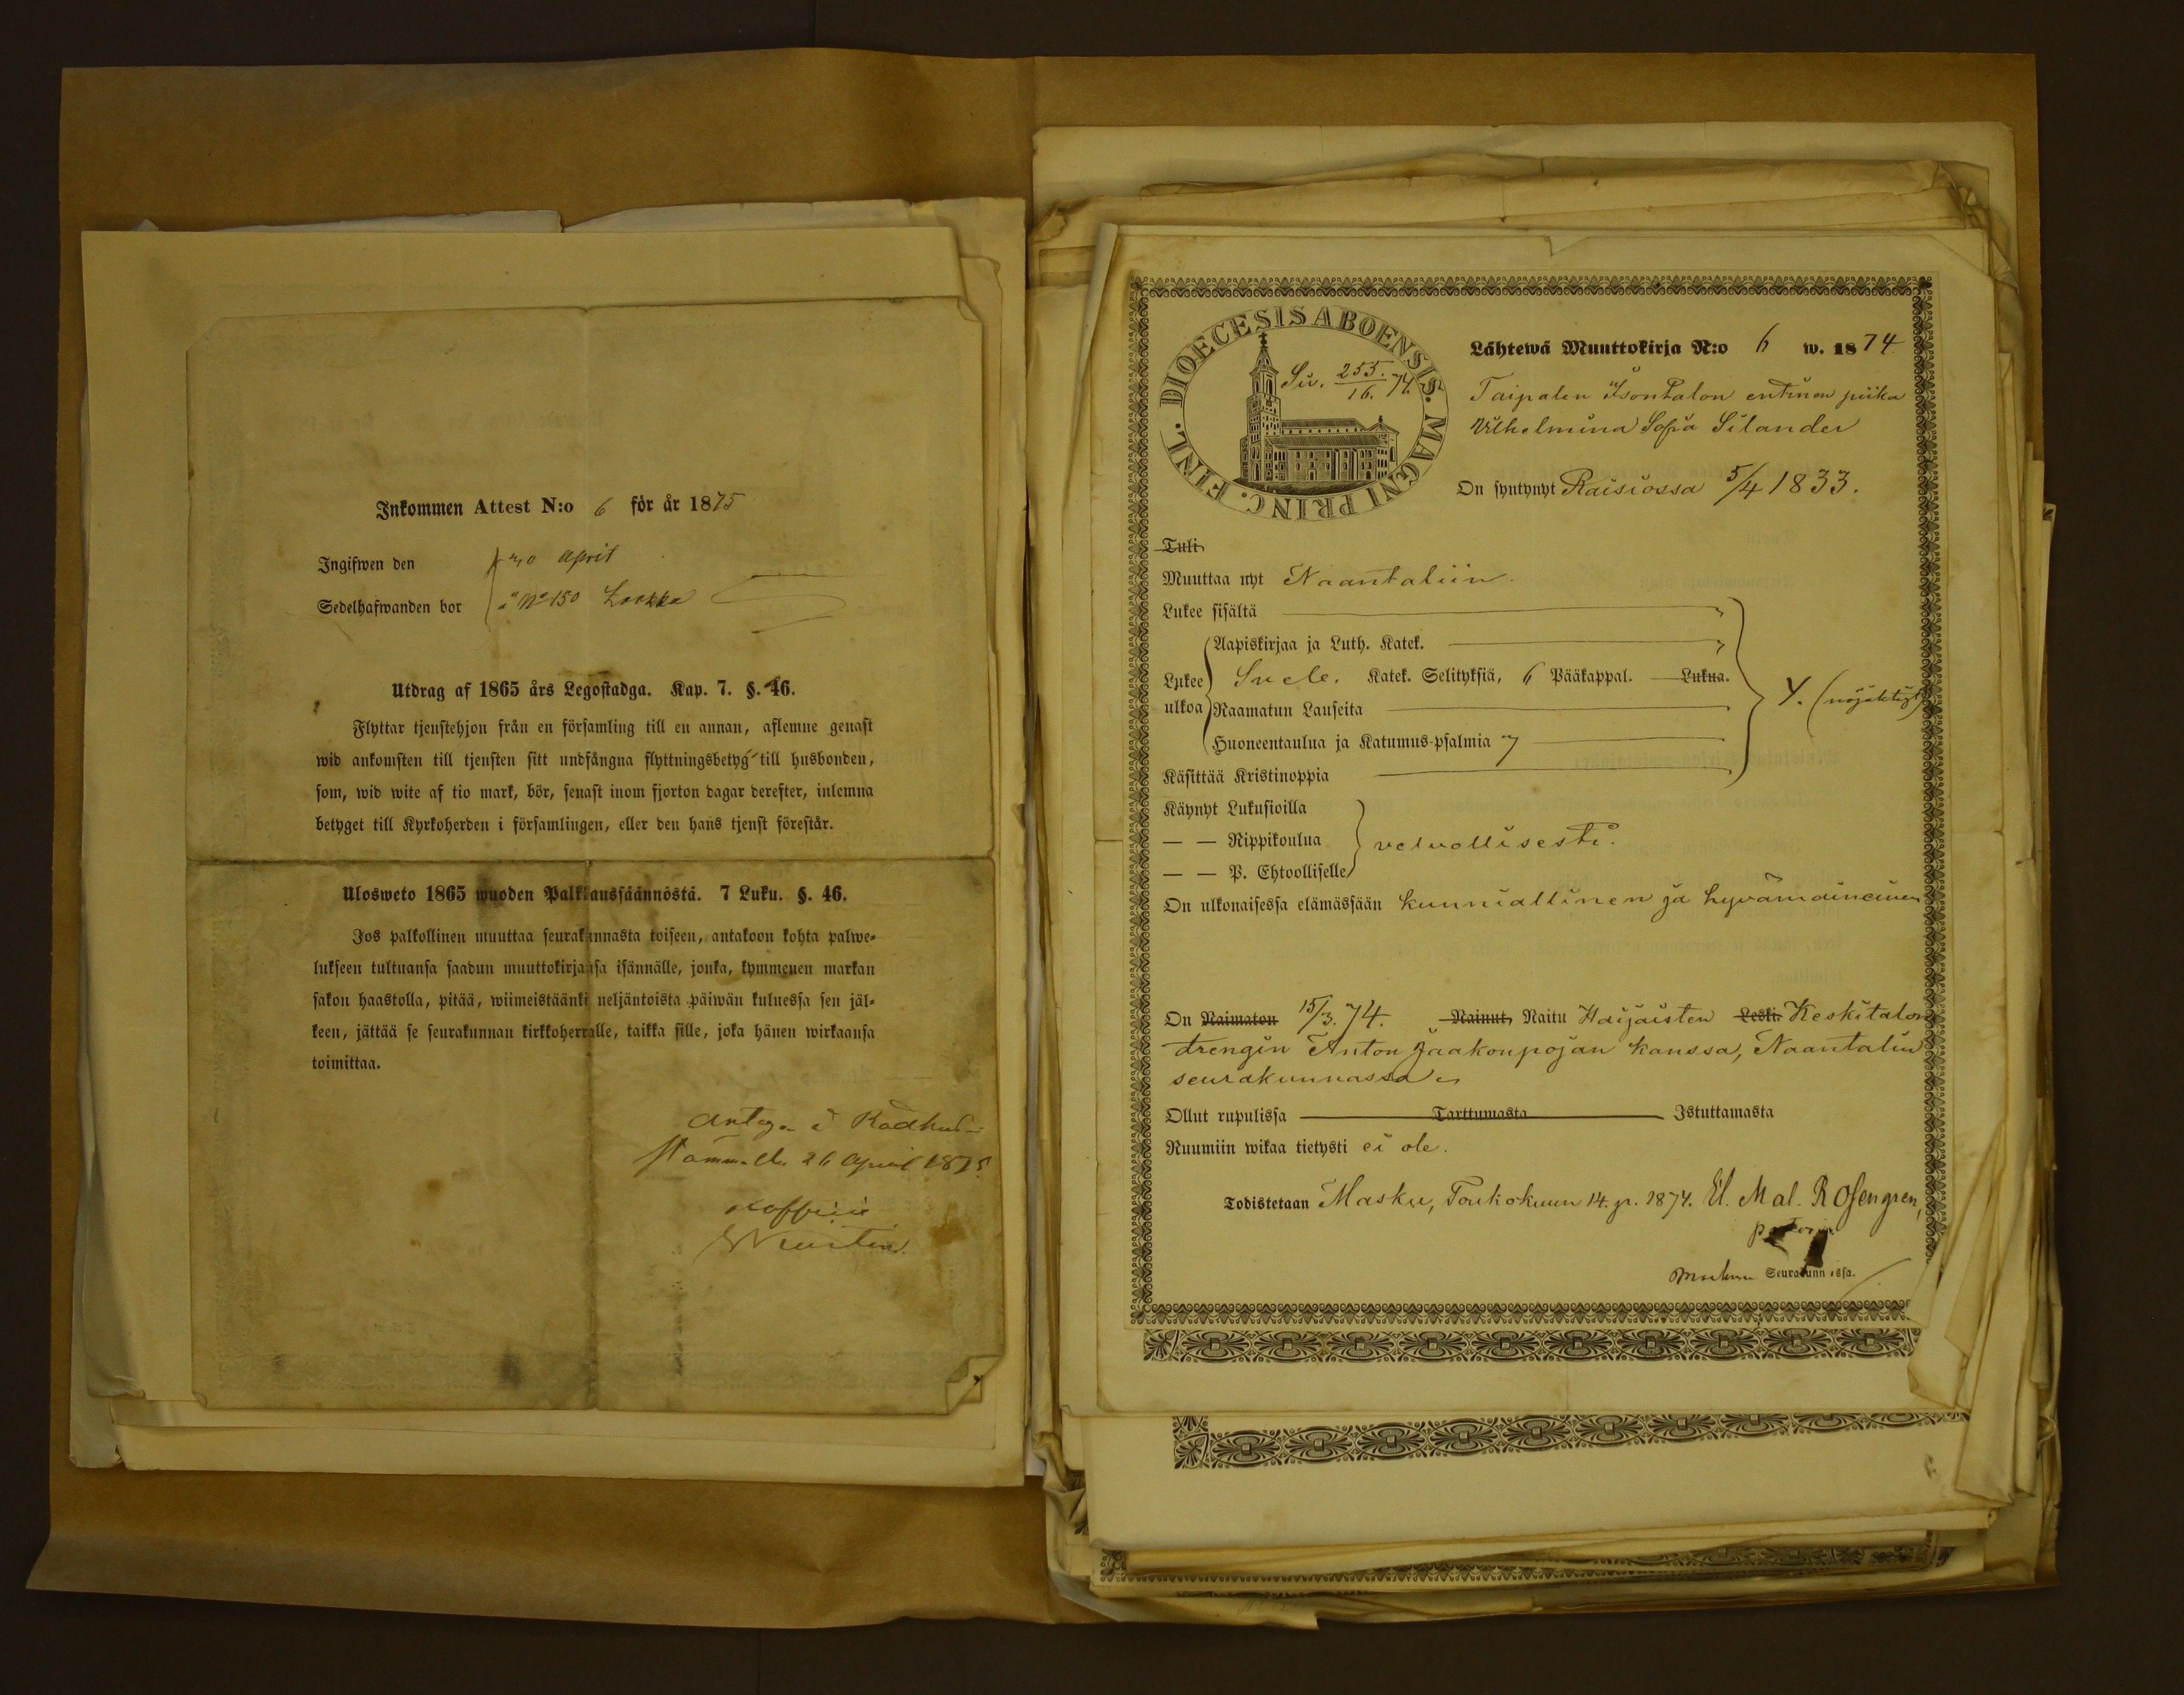 Inkommen Attest N:o 6 för år 1875
Ingifwen den 20 April
Sedelhafwanden bor å No 150
Utdrag af 1865 års Legostadga. Kap. 7. §. 46.
Flyttar tjenstehjon från en församling till en annan, aflemne genast
wid ankomsten till tjensten sitt undfångna flyttningsbetyg till husbonden,
som, wid wite af tio mark, bör, senast inom fjorton dagar derefter, inlemna
betyget till Kyrkoherden i församlingen, eller den hans tjenst förestår.
Ulosweto 1865 wuoden Palkkaussäännöstä. 7 Luku. §. 46.
Jos palkollinen muuttaa seurakunnasta toiseen, antakoon kohta palwe-
lukseen tultuansa saadun muuttokirjansa isännälle, jonka, kymmenen markan
sakon haastolla, pitää, wiimeistäänki neljäntoista päiwän kuluessa sen jäl-
keen, jättää se seurakunnan kirkkoherralle, taikka sille, joka hänen wirkaansa
toimittaa.
26 April 1875
DIOECESIS ABOENSIS. MAGNI PRINC. FINL.
Siv. 255./16. 74.
Lähtewä Muuttokirja N:o 6 w. 1874
Taipalen Isontalon entinen piika
Vilhelmina Sofia Silander
On syntynyt Raisiossa 5/4 1833.
Tuli
Muuttaa nyt Naantaliin.
Lukee sisältä
Lukee ulkoa
Aapiskirjaa ja Luth. Katek.
Katek. Selityksiä, 6 Pääkappal. Lukua.
Raamatun Lauseita
Huoneentaulua ja Katumus-psalmia 7
Y. (nöjaktigt)
Käsittää Kristinoppia
Käynyt Lukusioilla
— — Rippikoulua velvollisesti.
— — P. Ehtoolliselle
On ulkonaisessa elämässään kunniallinen ja hyvämaineinen
On Naimaton 15/3. 74. Nainut, Naitu Haijaisten Leski. Keskitalon
drengin Anton Jaakonpojan kanssa, Naantalin
seurakunnassa
Ollut rupulissa Tarttumasta Istuttamasta
Ruumiin wikaa tietysti ei ole.
Todistetaan Masku, Toukokuun 14. p. 1874. El. Mal. Rosengren,
Seurakunnassa.